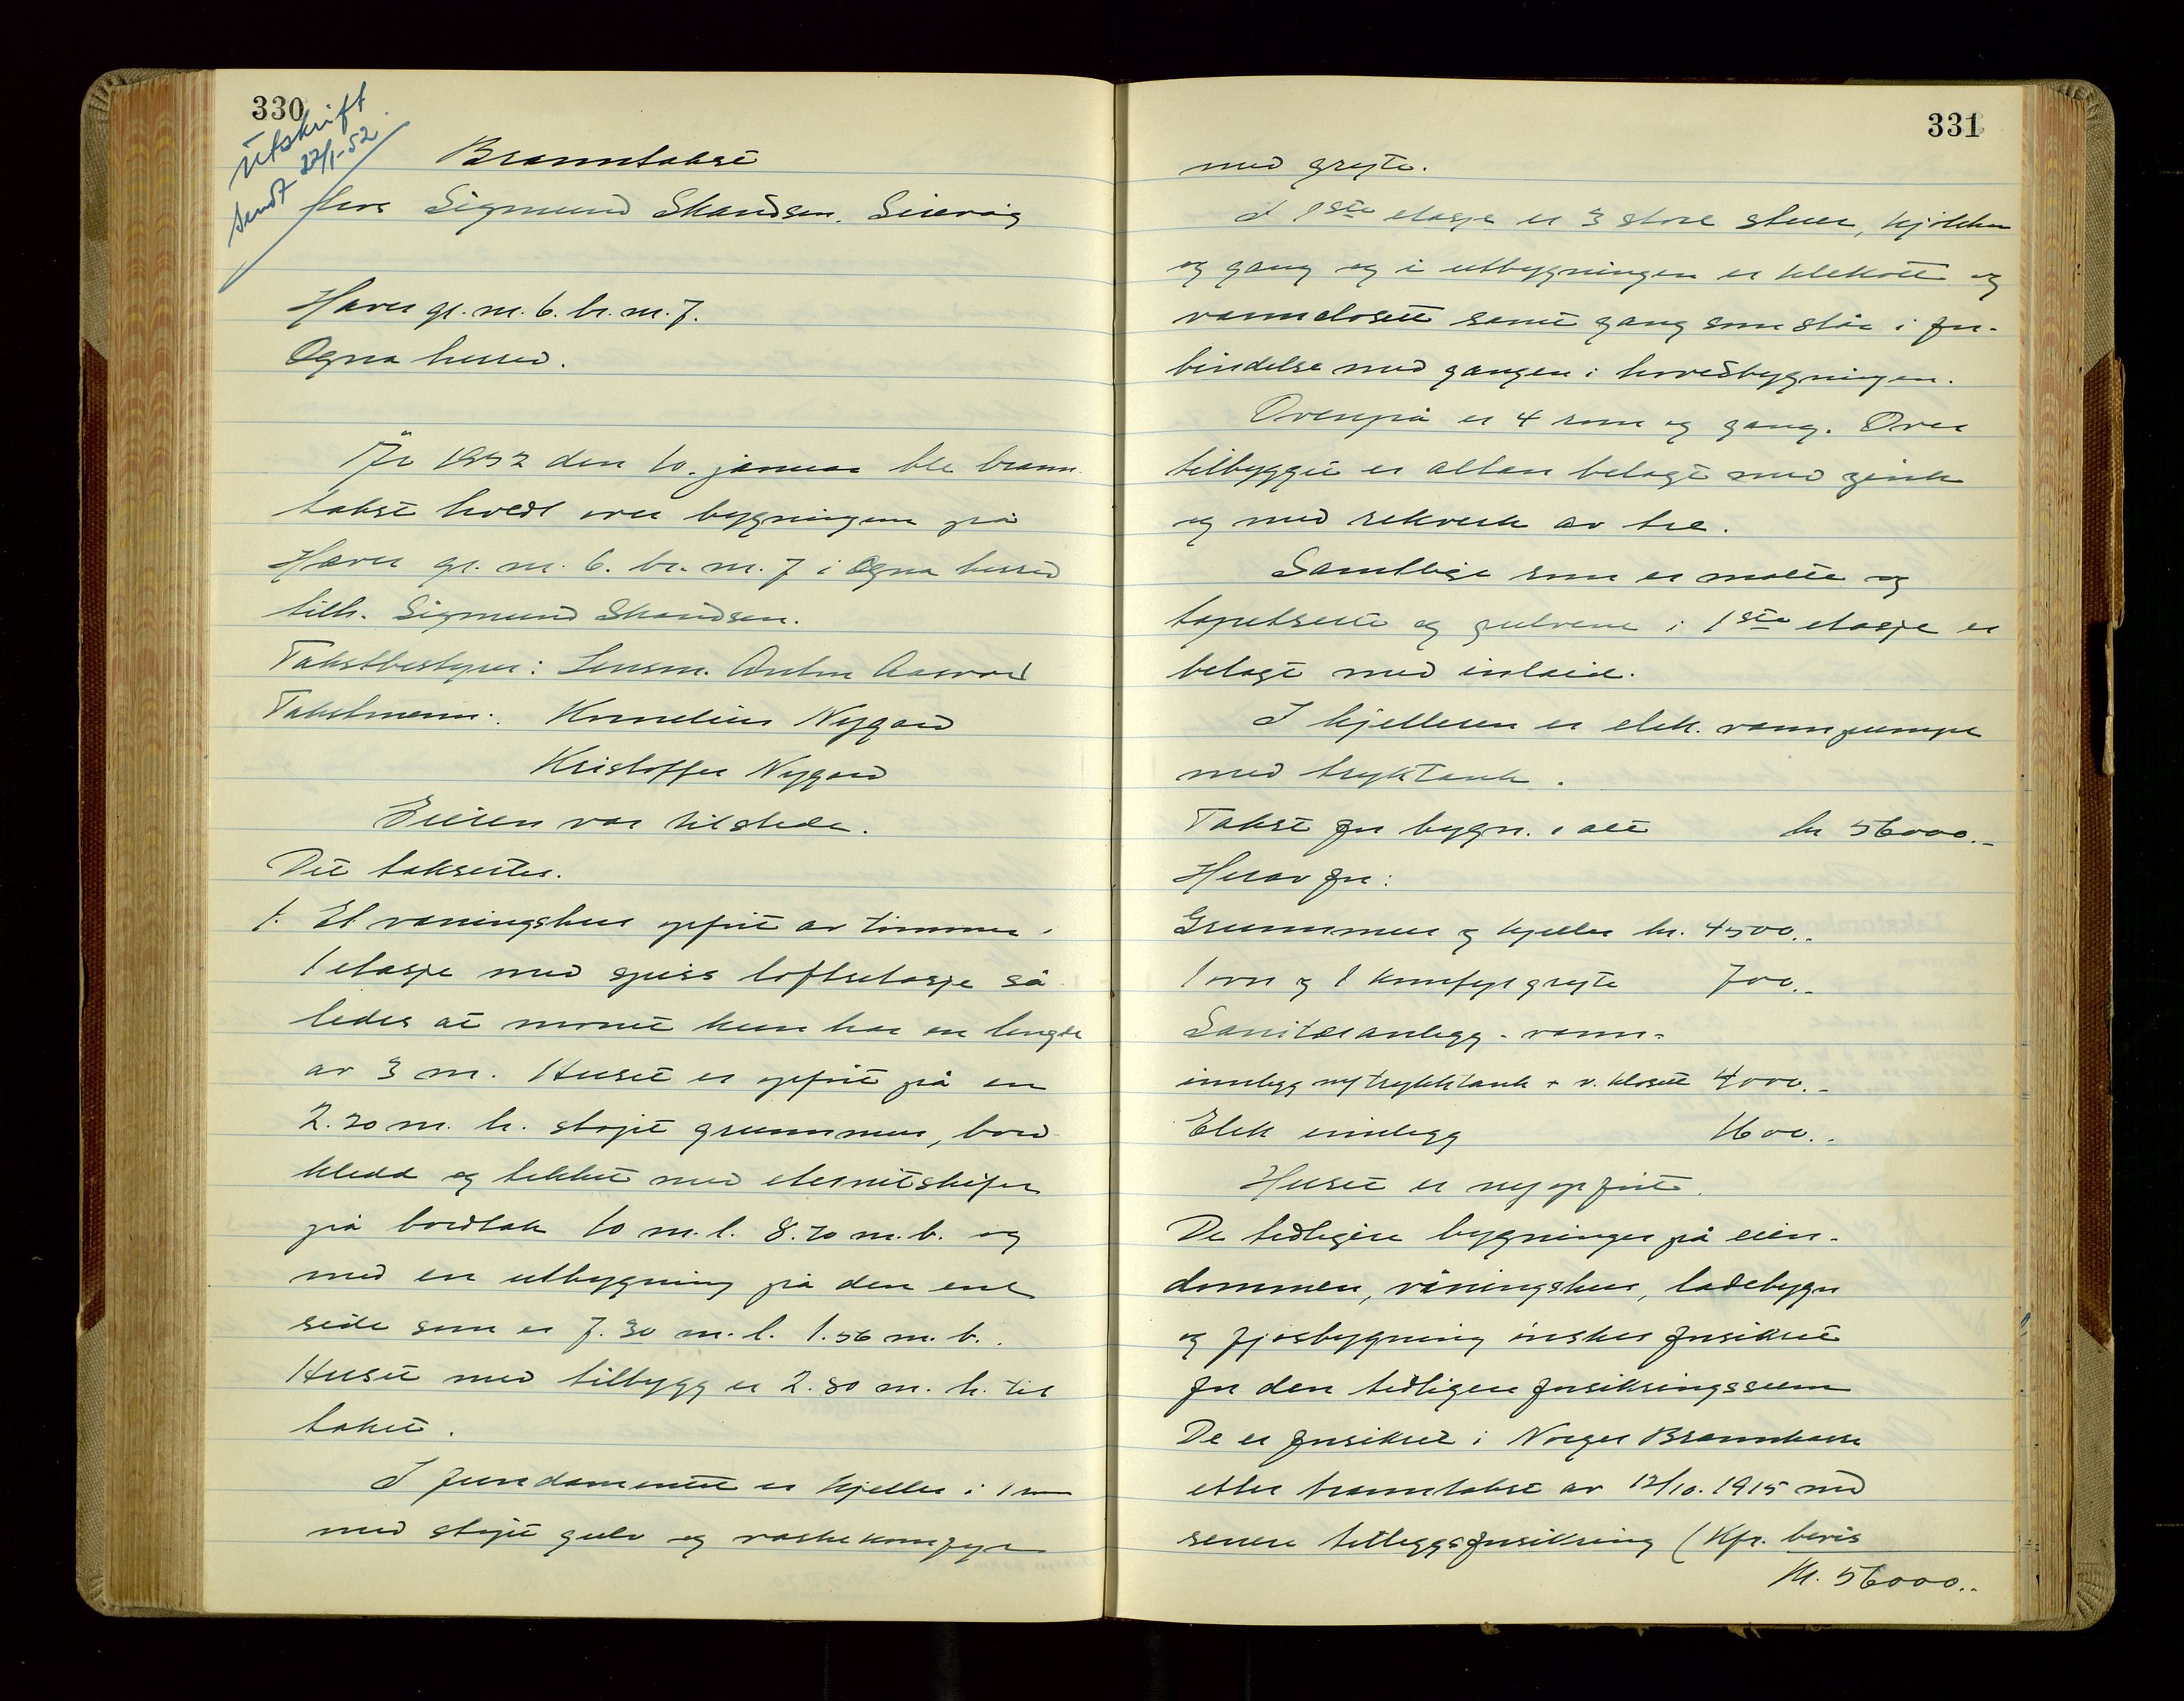 330
Utskrift
sendt 22/1-52.
Branntakst
hos Sigmund Skandsen. Sirevåg
Haver gr. nr. 6. br. nr. 7.
Ogna herred.
År 1952 den 10. januar ble brann-
takst holdt over bygningene på
Haver gr. nr. 6. br. nr. 7 i Ogna herred
tilh. Sigmund Skandsen.
Takstbestyrer: Lensm. Anton Aasvold
Takstmenn: Kornelius Nygård
Kristoffer Nygård
Eieren var tilstede.
Det taksertes.
1. Et våningshus opført av tømmer i
1 etasje med spiss loftsetasje så-
ledes at mønet kun har en lengde
av 3 m. Huset er opført på en
2.20 m. h. støpt grunnmur, bord-
kledd og tekket med eternitskifer
på bordtak 10 m. l. 8.70 m. b. og
med en utbygning på den ene
side som er 7.30 m. l. 1.56 m. b.
Huset med tilbygg er 2.80 m. h. til
taket.
I fundamentet er kjeller i 1 rom
med støpt gulv og vaskekomfyr
331
med grøte.
I 1ste etasje er 3 store stuer, kjøkken
og gang og i utbygningen er klekott og
vannclosett samt gang som står i for-
bindelse med gangen i hovedbygningen.
Ovenpå er 4 rom og gang. Over
tilbygget er altan belagt med zink
og med rekverk av tre.
Samtlige rom er malte og
tapetserte og gulvene i 1ste etasje er
belagt med inlaid.
I kjelleren er elek. vannpumpe
med tryktank.
Takst for bygn. i alt kr 56000.-
Herav for:
Grunnmur og kjeller kr. 4500.-
1 ovn og 1 komfyr grøte 700.-
Sanitæranlegg - vann-
innlegg m/trykktank + v. klosett 4000.-
Elek innlegg 1600.-
Huset er nyopført.
De tidligere bygninger på eien-
dommen, våningshus, ladebygn
og fjøsbygning ønskes forsikret
for den tidligere forsikringssum
De er forsikret i Norges Brannkasse
etter branntakst av 12/10. 1915 med
senere tilleggsforsikring (Kfr. bevis
Kr. 56000.-